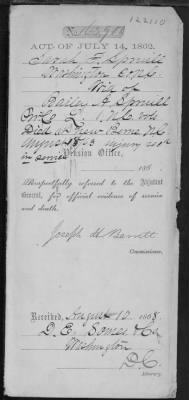 122110
No. 162901
ACT OF JULY 14, 1862.
Sarah F. Spruill
Washington
Wid. of
Bailey A. Spruill
L 1 N.C. Vols
Died at New Berne N.C.
August 18 63 injury recd
in service
Pension Office,
186 .
Respectfully referred to the Adjutant
General, for official evidence of service
and death.
Joseph H. Barrett
Commissioner.
Received, August 12, 1868
D. E. Somes & Co
Washington
D.C.
Attorney.